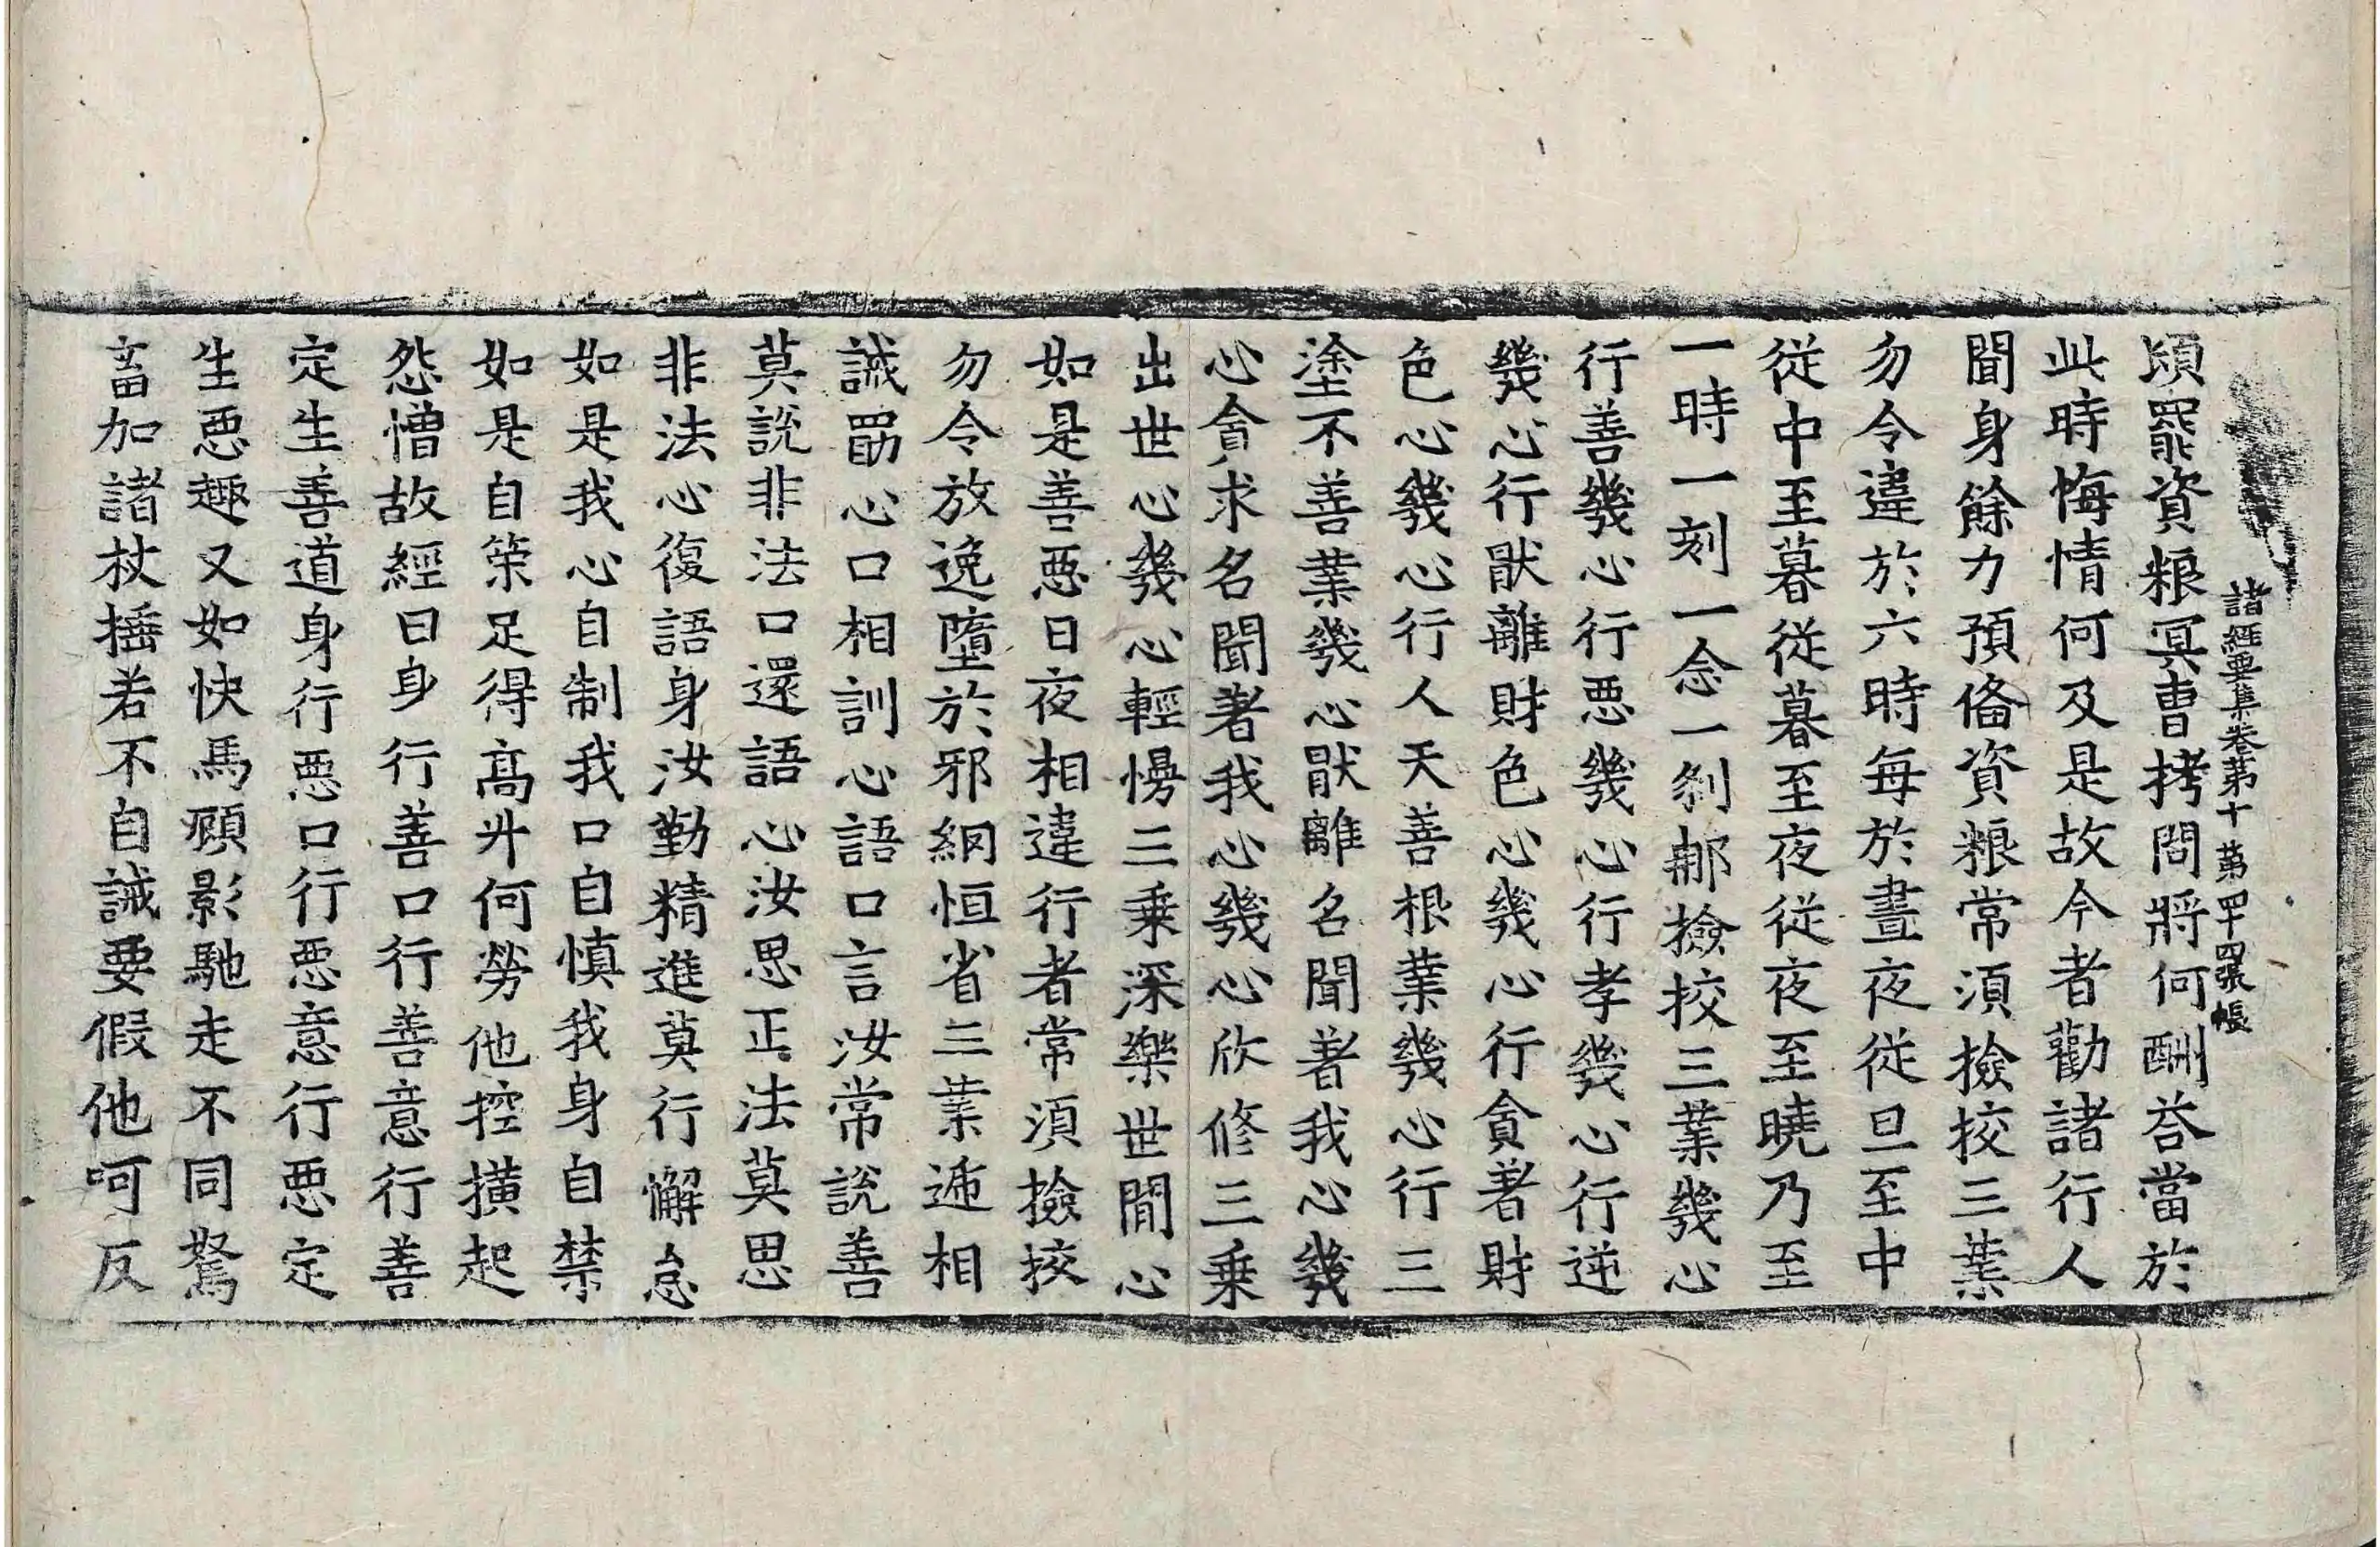 諸經要集卷第十 第四十四張 帳
頃罷資粮冥曺拷問將何酬荅當於
此時悔情何及是故今者勸諸行人
聞身餘力預俻資粮常湏撿挍三業
勿令違於六時每於晝夜従旦至中
従中至暮従暮至夜従夜至曉乃至
一時一刻一念一刹那撿挍三業幾心
行善幾心行惡幾心行孝幾心行逆
幾心行猒離財色心幾心行貪著財
色心幾心行人天善根業幾心行三
塗不善業幾心猒離名聞著我心幾
心貪求名聞著我心幾心欣修三乗
出世心幾心輕慢三乗深樂世間心
如是善惡日夜相違行者常湏撿挍
勿令放逸墮於邪網恒省三業遞相
誡勗心口相訓心語口言汝常說善
莫說非法口還語心汝思正法莫思
非法心復語身汝勤精進莫行懈怠
如是我心自制我口自慎我身自禁
如是自策足得髙升何勞他控摸起
怨憎故經曰身行善口行善意行善
定生善道身行惡口行惡意行惡定
生惡趣又如快馬顧影馳走不同駑
畜加諸杖捶若不自誡要假他呵反